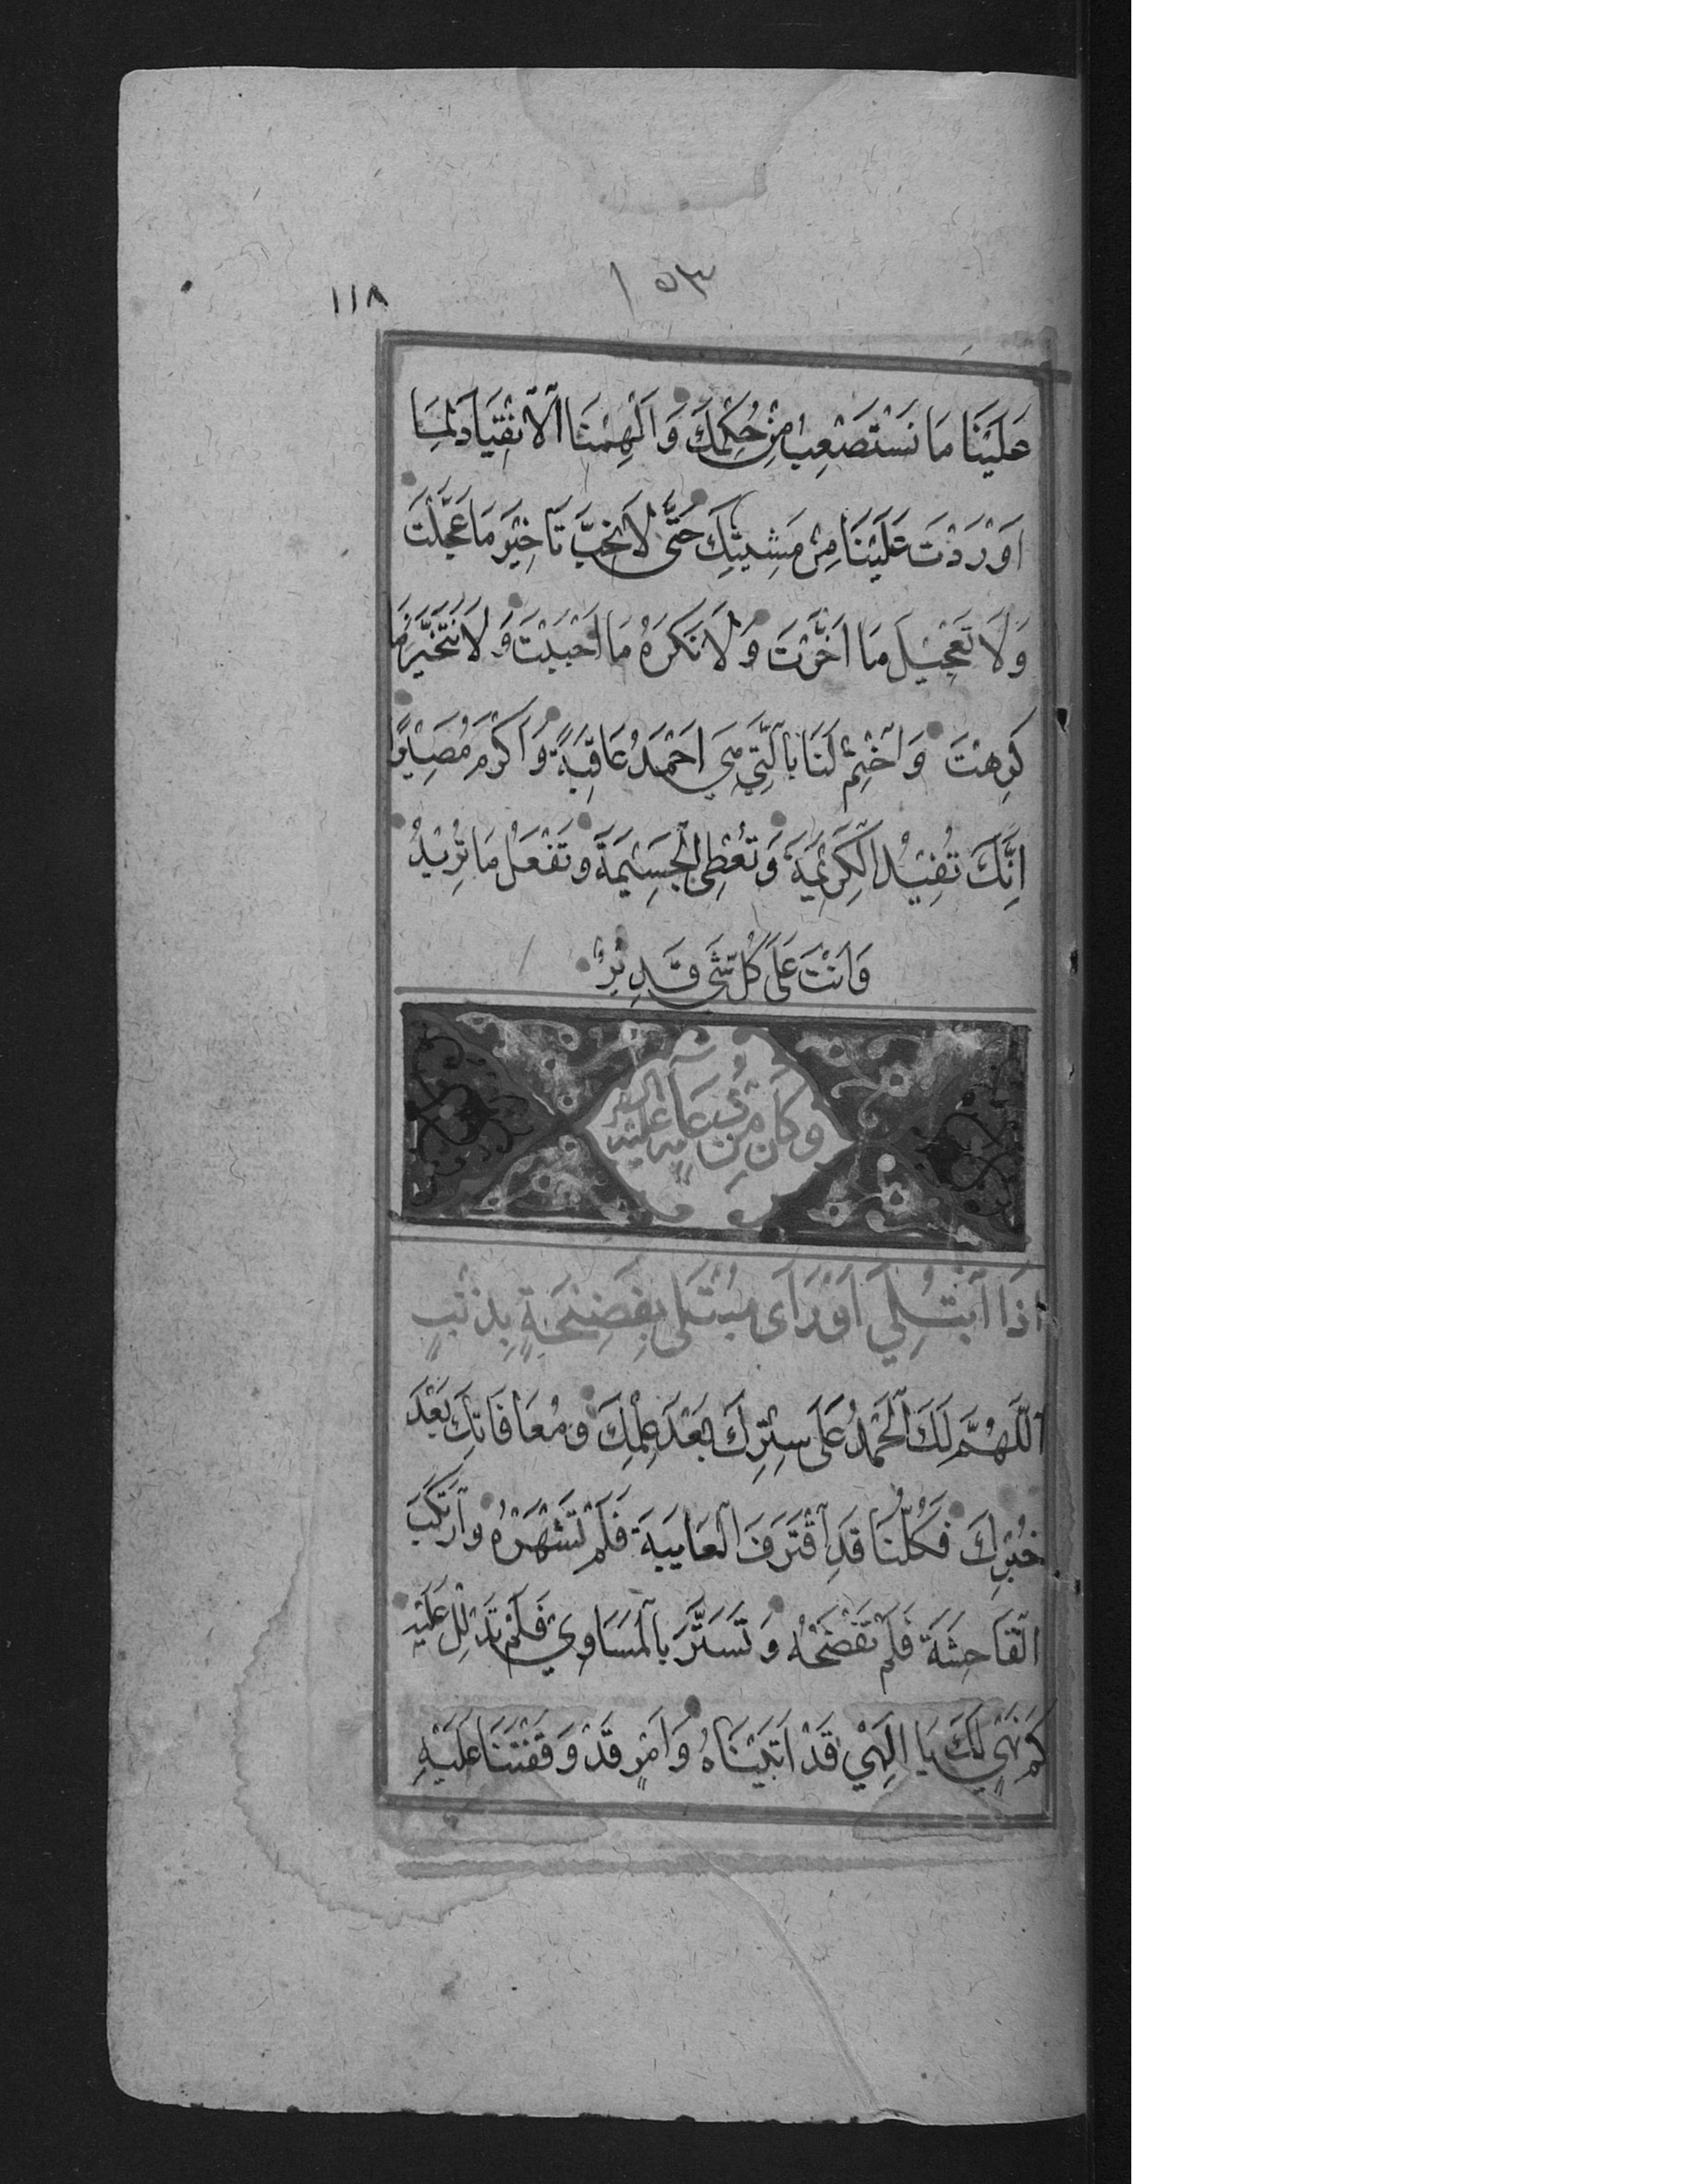 ١٥٣
١١٨
عَلَيْنَا مَا نَسْتَصْعِبُ مِنْ حُكْمِكَ وَاَلْهِمْنَا الْاِنْقِيَادَ لِمَا
اَوْرَدْتَ عَلَيْنَا مِنْ مَشِيَّتِكَ حَتّٰى لَا نُحِبَّ تَاْخِيْرَ مَا عَجَّلْتَ
وَلَا تَعْجِيْلَ مَا اَخَّرْتَ وَلَا نَكْرَهُ مَا اَحْبَبْتَ وَلَا نَتَخَيَّرَ مَا
كَرِهْتَ وَاخْتِمْ لَنَا بِالَّتِيْ هِيَ اَحْمَدُ عَاقِبَةً وَاَكْرَمُ مَصِيْرًا
اِنَّكَ تُفِيْدُ الْكَرِيْمَةَ وَتُعْطِي الْجَسِيْمَةَ وَتَفْعَلُ مَا تُرِيْدُ
وَاَنْتَ عَلٰى كُلِّ شَيْ قَدِيْرٌ
وَكَانَ مِنْ دُعَآئِهِ عَلَيْهِ السَّلَام
اِذَا ابْتُلِيَ اَوْ رَاٰى مُبْتَلًى بِفَضِيْحَةٍ بِذَنْبٍ
اَللّٰهُمَّ لَكَ الْحَمْدُ عَلٰى سِتْرِكَ بَعْدَ عِلْمِكَ وَمُعَافَاتِكَ بَعْدَ
خُبْرِكَ فَكُلُّنَا قَدِ اقْتَرَفَ الْعَايِبَةَ فَلَمْ تَشْهَرْهُ وَارْتَكَبَ
الْفَاحِشَةَ فَلَمْ تَفْضَحْهُ وَتَسَتَّرَ بِالْمَسَاوِيْ فَلَمْ تَدْلُلْ عَلَيْهِ
كَمْ نَهْيٍ لَكَ يَا اِلٰهِيْ قَدْ اَتَيْنَاهُ وَاَمْرٍ قَدْ وَقَفْتَنَا عَلَيْهِ